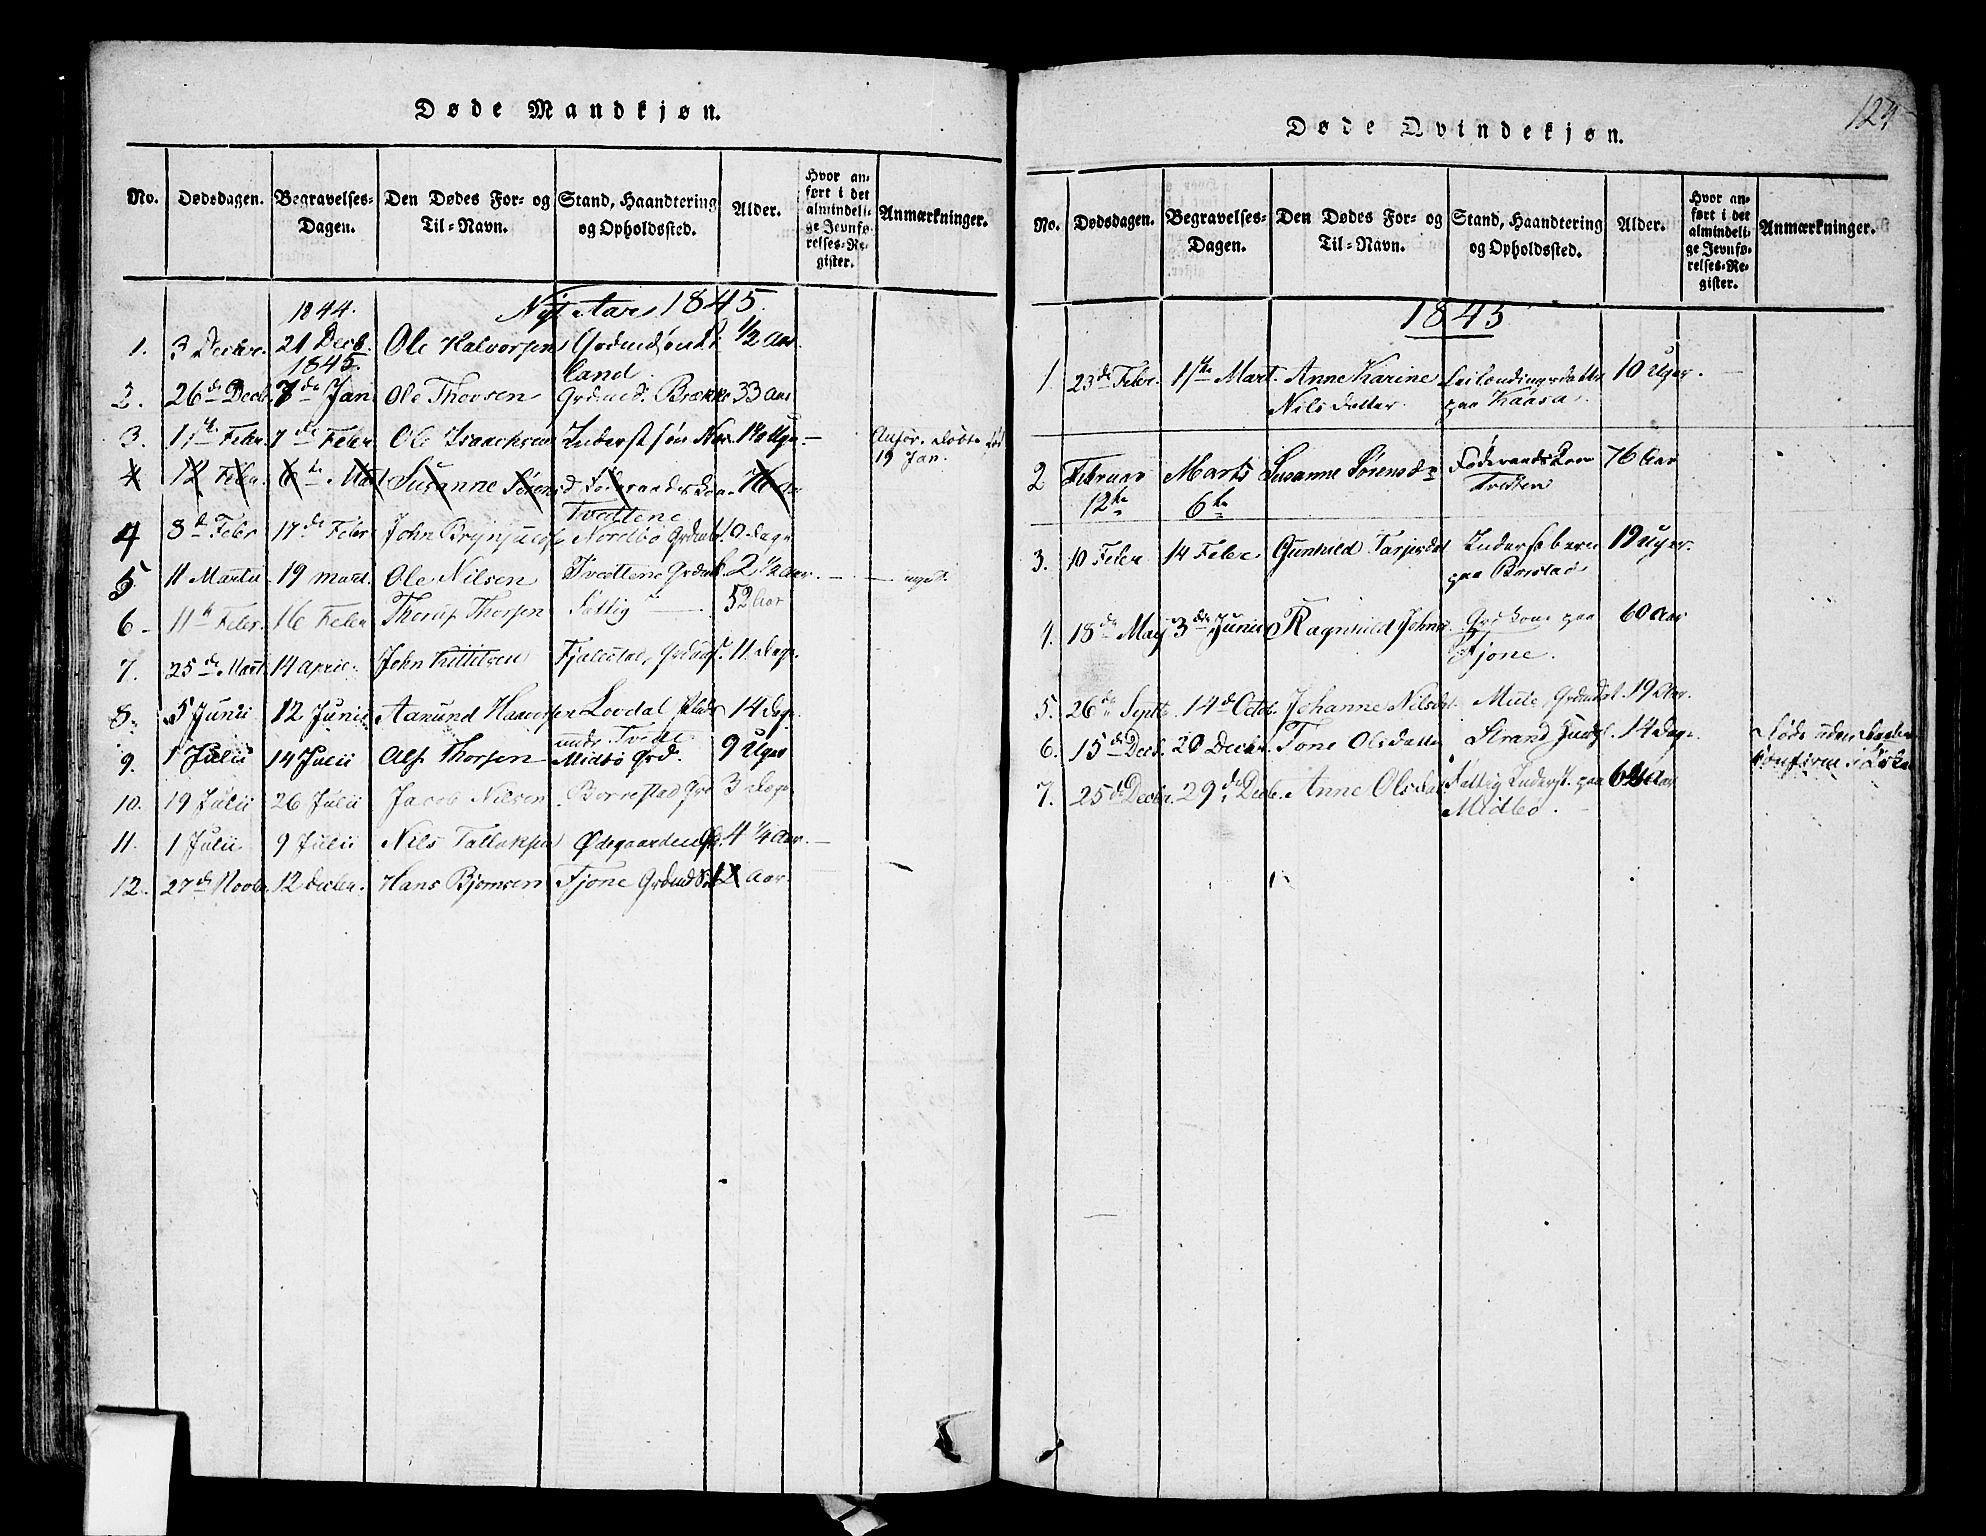 Døde Mandkjøn.
No. Dødsdagen. Begravelses-Dagen. Den Dødes For- og Til-Navn. Stand, Haandtering og Opholdssted. Alder. Hvor anført i det almindelige Jevnførelses-Register. Anmærkninger.
1844. Nyt Aar 1845.
1. 3 Decbr. 21 Decb. Ole Halvorsen 1/2 Aar
land
1845.
2. 26de Decb. 7de Jan Ole Thovsen Grdmd. Brække 33 Aar
3. 1ste Febr. 7de Febr Ole Isaachsen Inderst søn
19 Jan.
4 12 Febr. 6te Mart Susanne Sørensd. Føderaadskone 76 Aar
Tvedtene
4 8de Febr 17de Febr John Brynjulfs Nordbø Grdmd. 10 Dage
5 11 Martii 19 Mart. Ole Nilsen Tvedtene Grdmd. 2 1/2 Aar. —
6 - 11te Febr. 16 Febr Thorjus Thorsen Fattig — 52 Aar
7. 25de Mart 14 April. John Kittilsen Fjaledal, 11 Dage
8. 5 Junii 12 Junii Aanund Haavorsen Lovdal Plads 14 Dage
under Tvedt
9. 1 Julii 14 Julii Alf Thorsen Midbø Grd. 9 Uger
10. 19 Julii 26 Julii Jacob Nilsen Borrestad Grd 3 Dage
11. 1 Julii 9 Julii Nils Tallaksen Ødegaarden 4 1/4 Aar. —
12. 27de Novbr 12 Decbr. Hans Bjørnsen Fjone Grdmd 2 Aar.
Døde Qvindekjøn.
124
No. Dødsdagen. Begravelses-Dagen. Den Dødes For- og Til-Navn. Stand, Haandtering og Opholdssted. Alder. Hvor anført i det almindelige Jevnførelses-Register. Anmærkninger.
1845
1. 23de Febr. 1ste Mart. Anne Karine Leilendingsdatter 10 Uger. —
Nilsdatter paa Kaasa.
2 Februar Marts Susanne Sørensdr Føderaadskone 76 Aar
12te 6te Tvedten
3. 10 Febr 14 Febr Gunhild Tarjeisdat Inderstbarn 19 Uger.
paa Borstad
4. 18de May 3de Junii Ragnhild Johns. Grdkone paa 60 Aar
Fjone.
5. 26de Septb. 14de Octob. Johanne Nilsdat. Mule, 19 Aar.
6. 15de Decb. 20 Decbr. Tone Olsdatter Strand 14 Dage. Døbt uden
7. 25de Decbr. 29de Decb. Anne Olsdat Fattig Inderst. paa Aar
Midbø.